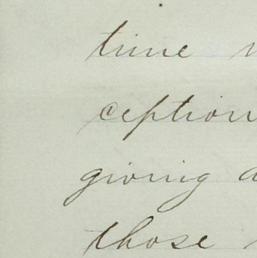 time
ception
giving
those